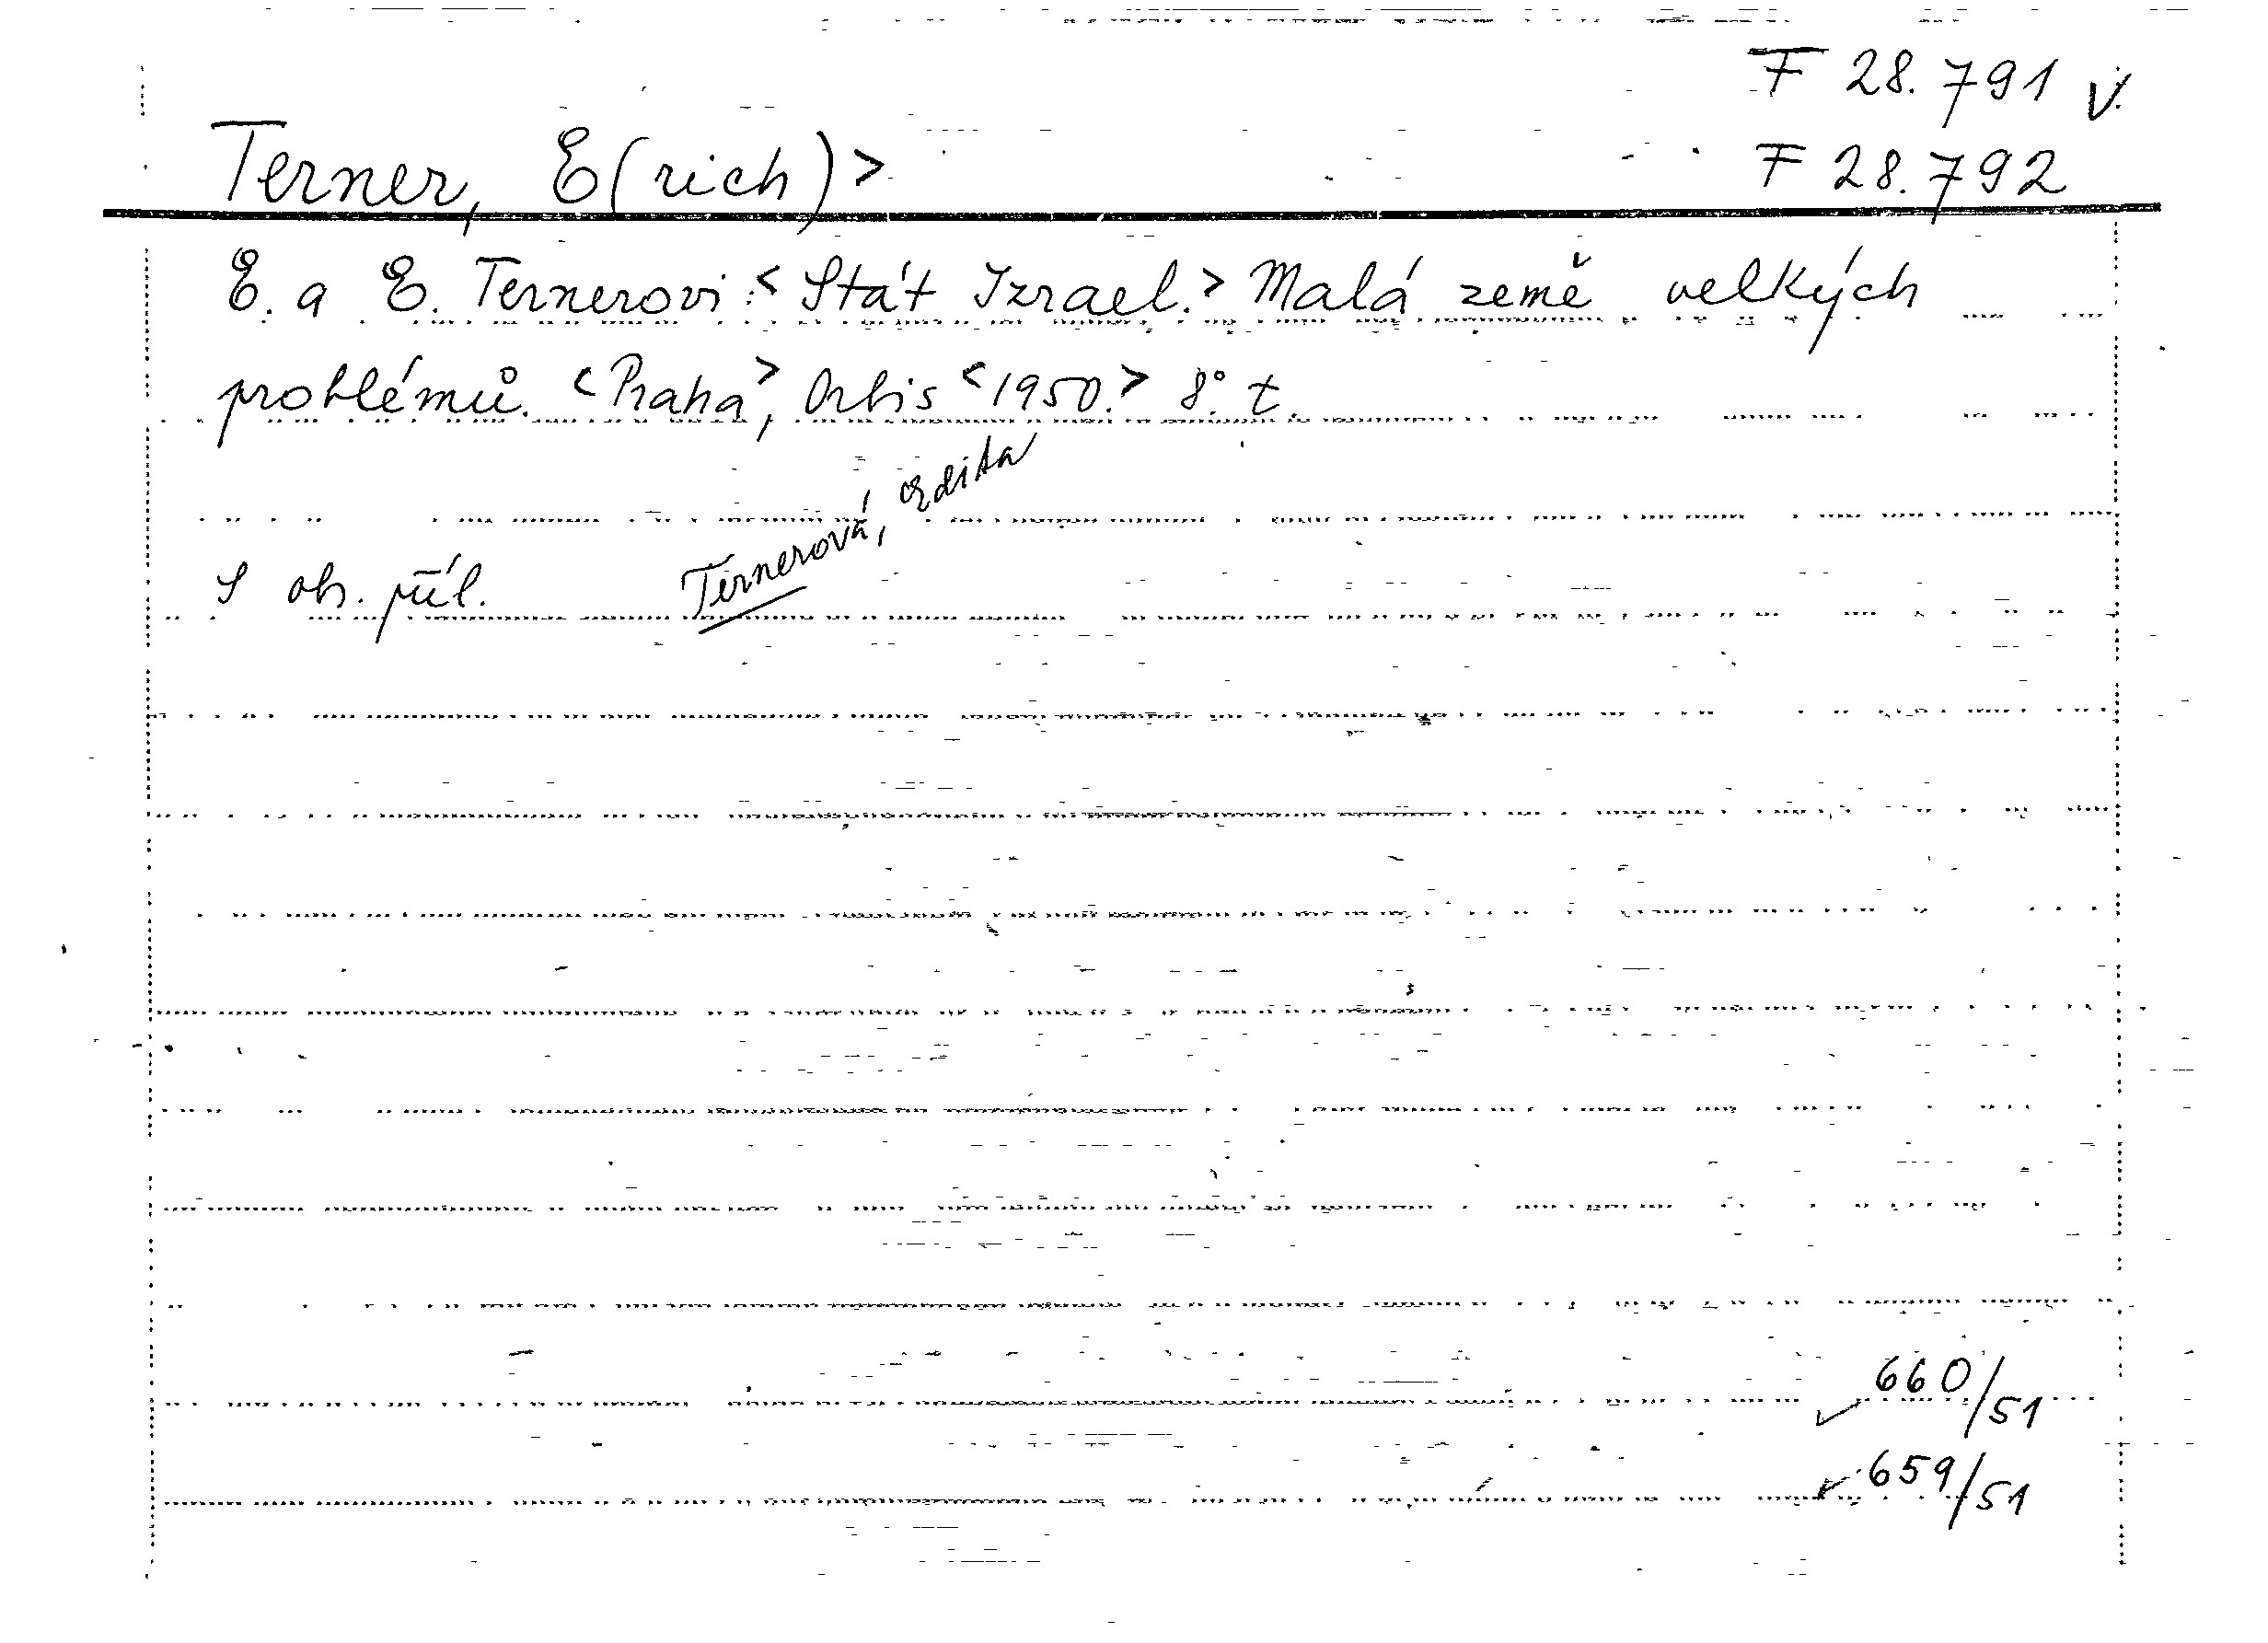 F 28.791 V.
Terner, E(rich)>
F 28.792
E. a E. Ternerovi:< Stát Izrael.> Malá země velkých
problémů. <Praha>, Orbis <1950.> 8°. t.
Ternerová, Edita
S ob. příl.
660/51
659/51